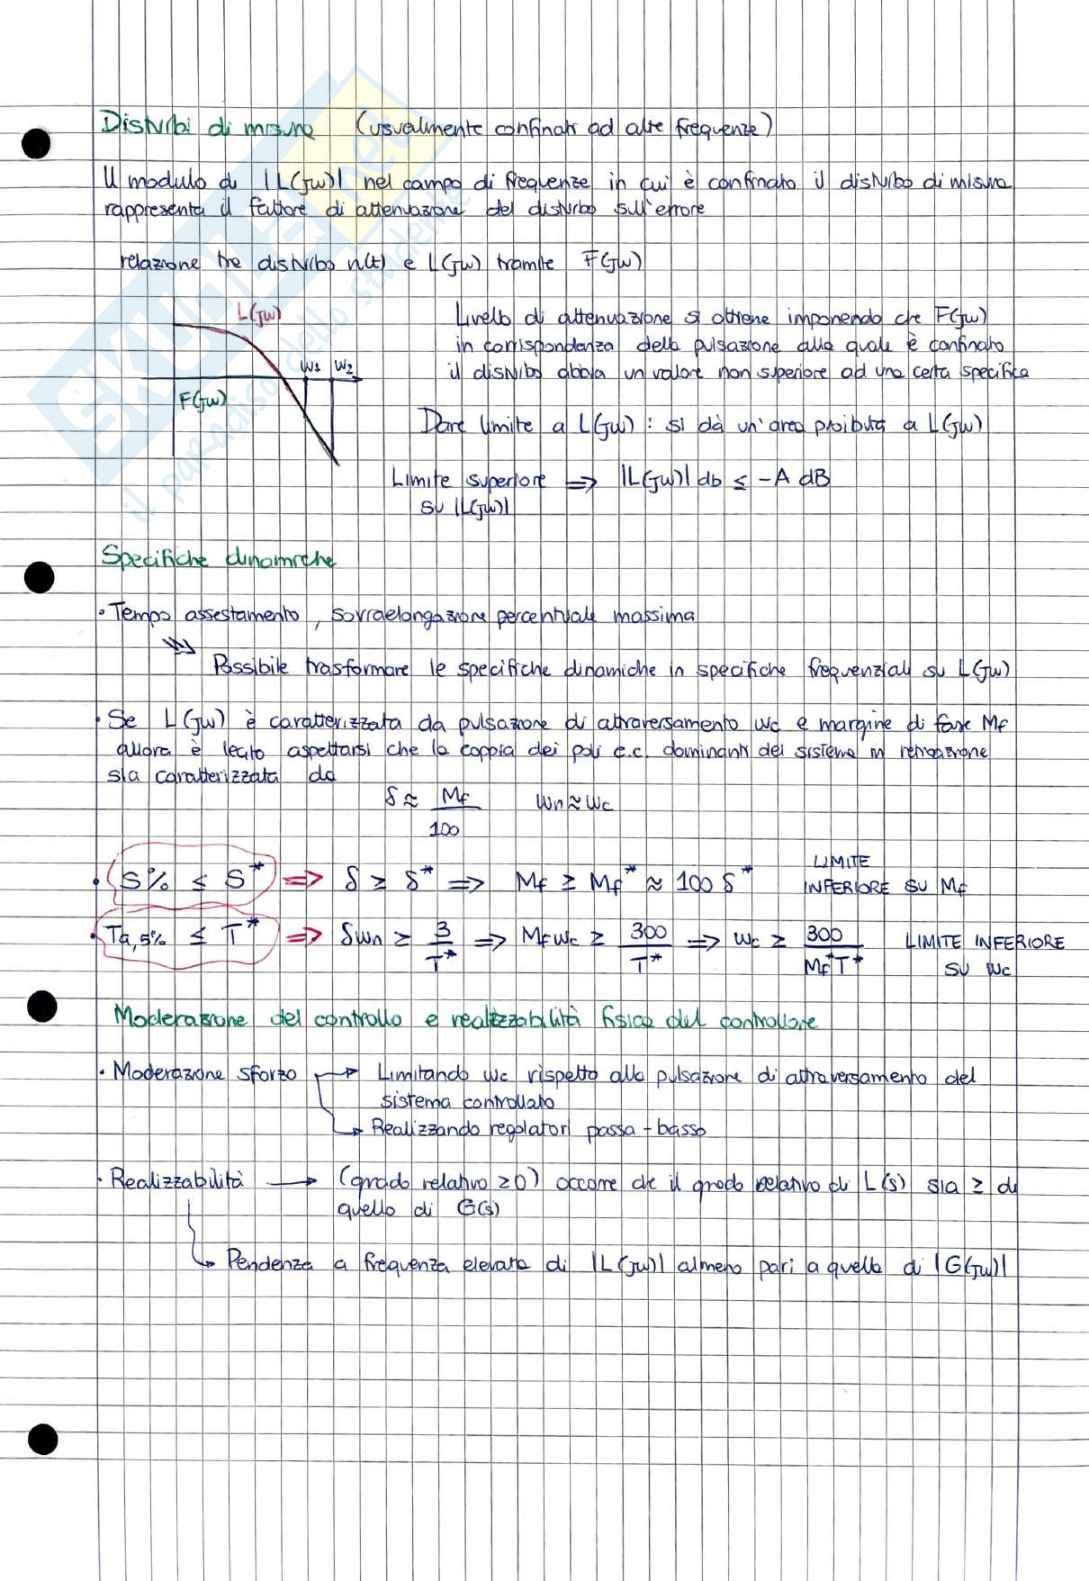 Disturbi di misura (usualmente confinati ad alte frequenze)
Il modulo di |L(jw)| nel campo di frequenze in cui è confinato il disturbo di misura
rappresenta il fattore di attenuazione del disturbo sull'errore
relazione tra disturbo n(t) e L(jw) tramite F(jw)
L(jw)
w1 w2
F(jw)
Livello di attenuazione si ottiene imponendo che F(jw)
in corrispondenza della pulsazione alla quale è confinato
il disturbo abbia un valore non superiore ad una certa specifica
Dare limite a L(jw): si dà un'area proibita a L(jw)
Limite superiore ⇒ |L(jw)| db ≤ -A dB
su |L(jw)|
Specifiche dinamiche
• Tempo assestamento, sovraelongazione percentuale massima
Possibile trasformare le specifiche dinamiche in specifiche frequenziali su L(jw)
• Se L(jw) è caratterizzata da pulsazione di attraversamento wc e margine di fase Mf
allora è lecito aspettarsi che la coppia dei poli c.c. dominanti del sistema in retroazione
sia caratterizzata da
δ ≈ Mf/100 wn ≈ wc
• S% ≤ S* ⇒ δ ≥ δ* ⇒ Mf ≥ Mf* ≈ 100 δ* LIMITE INFERIORE SU Mf
• Ta,5% ≤ T* ⇒ δwn ≥ 3/T* ⇒ Mfwc ≥ 300/T* ⇒ wc ≥ 300/Mf*T* LIMITE INFERIORE SU wc
Moderazione del controllo e realizzabilità fisica del controllore
• Moderazione sforzo → Limitando wc rispetto alla pulsazione di attraversamento del
sistema controllato
→ Realizzando regolatori passa-basso
• Realizzabilità → (grado relativo ≥0) occorre che il grado relativo di L(s) sia ≥ di
quello di G(s)
→ Pendenza a frequenza elevata di |L(jw)| almeno pari a quella di |G(jw)|
SKUOLA.net
il paradiso dello studente